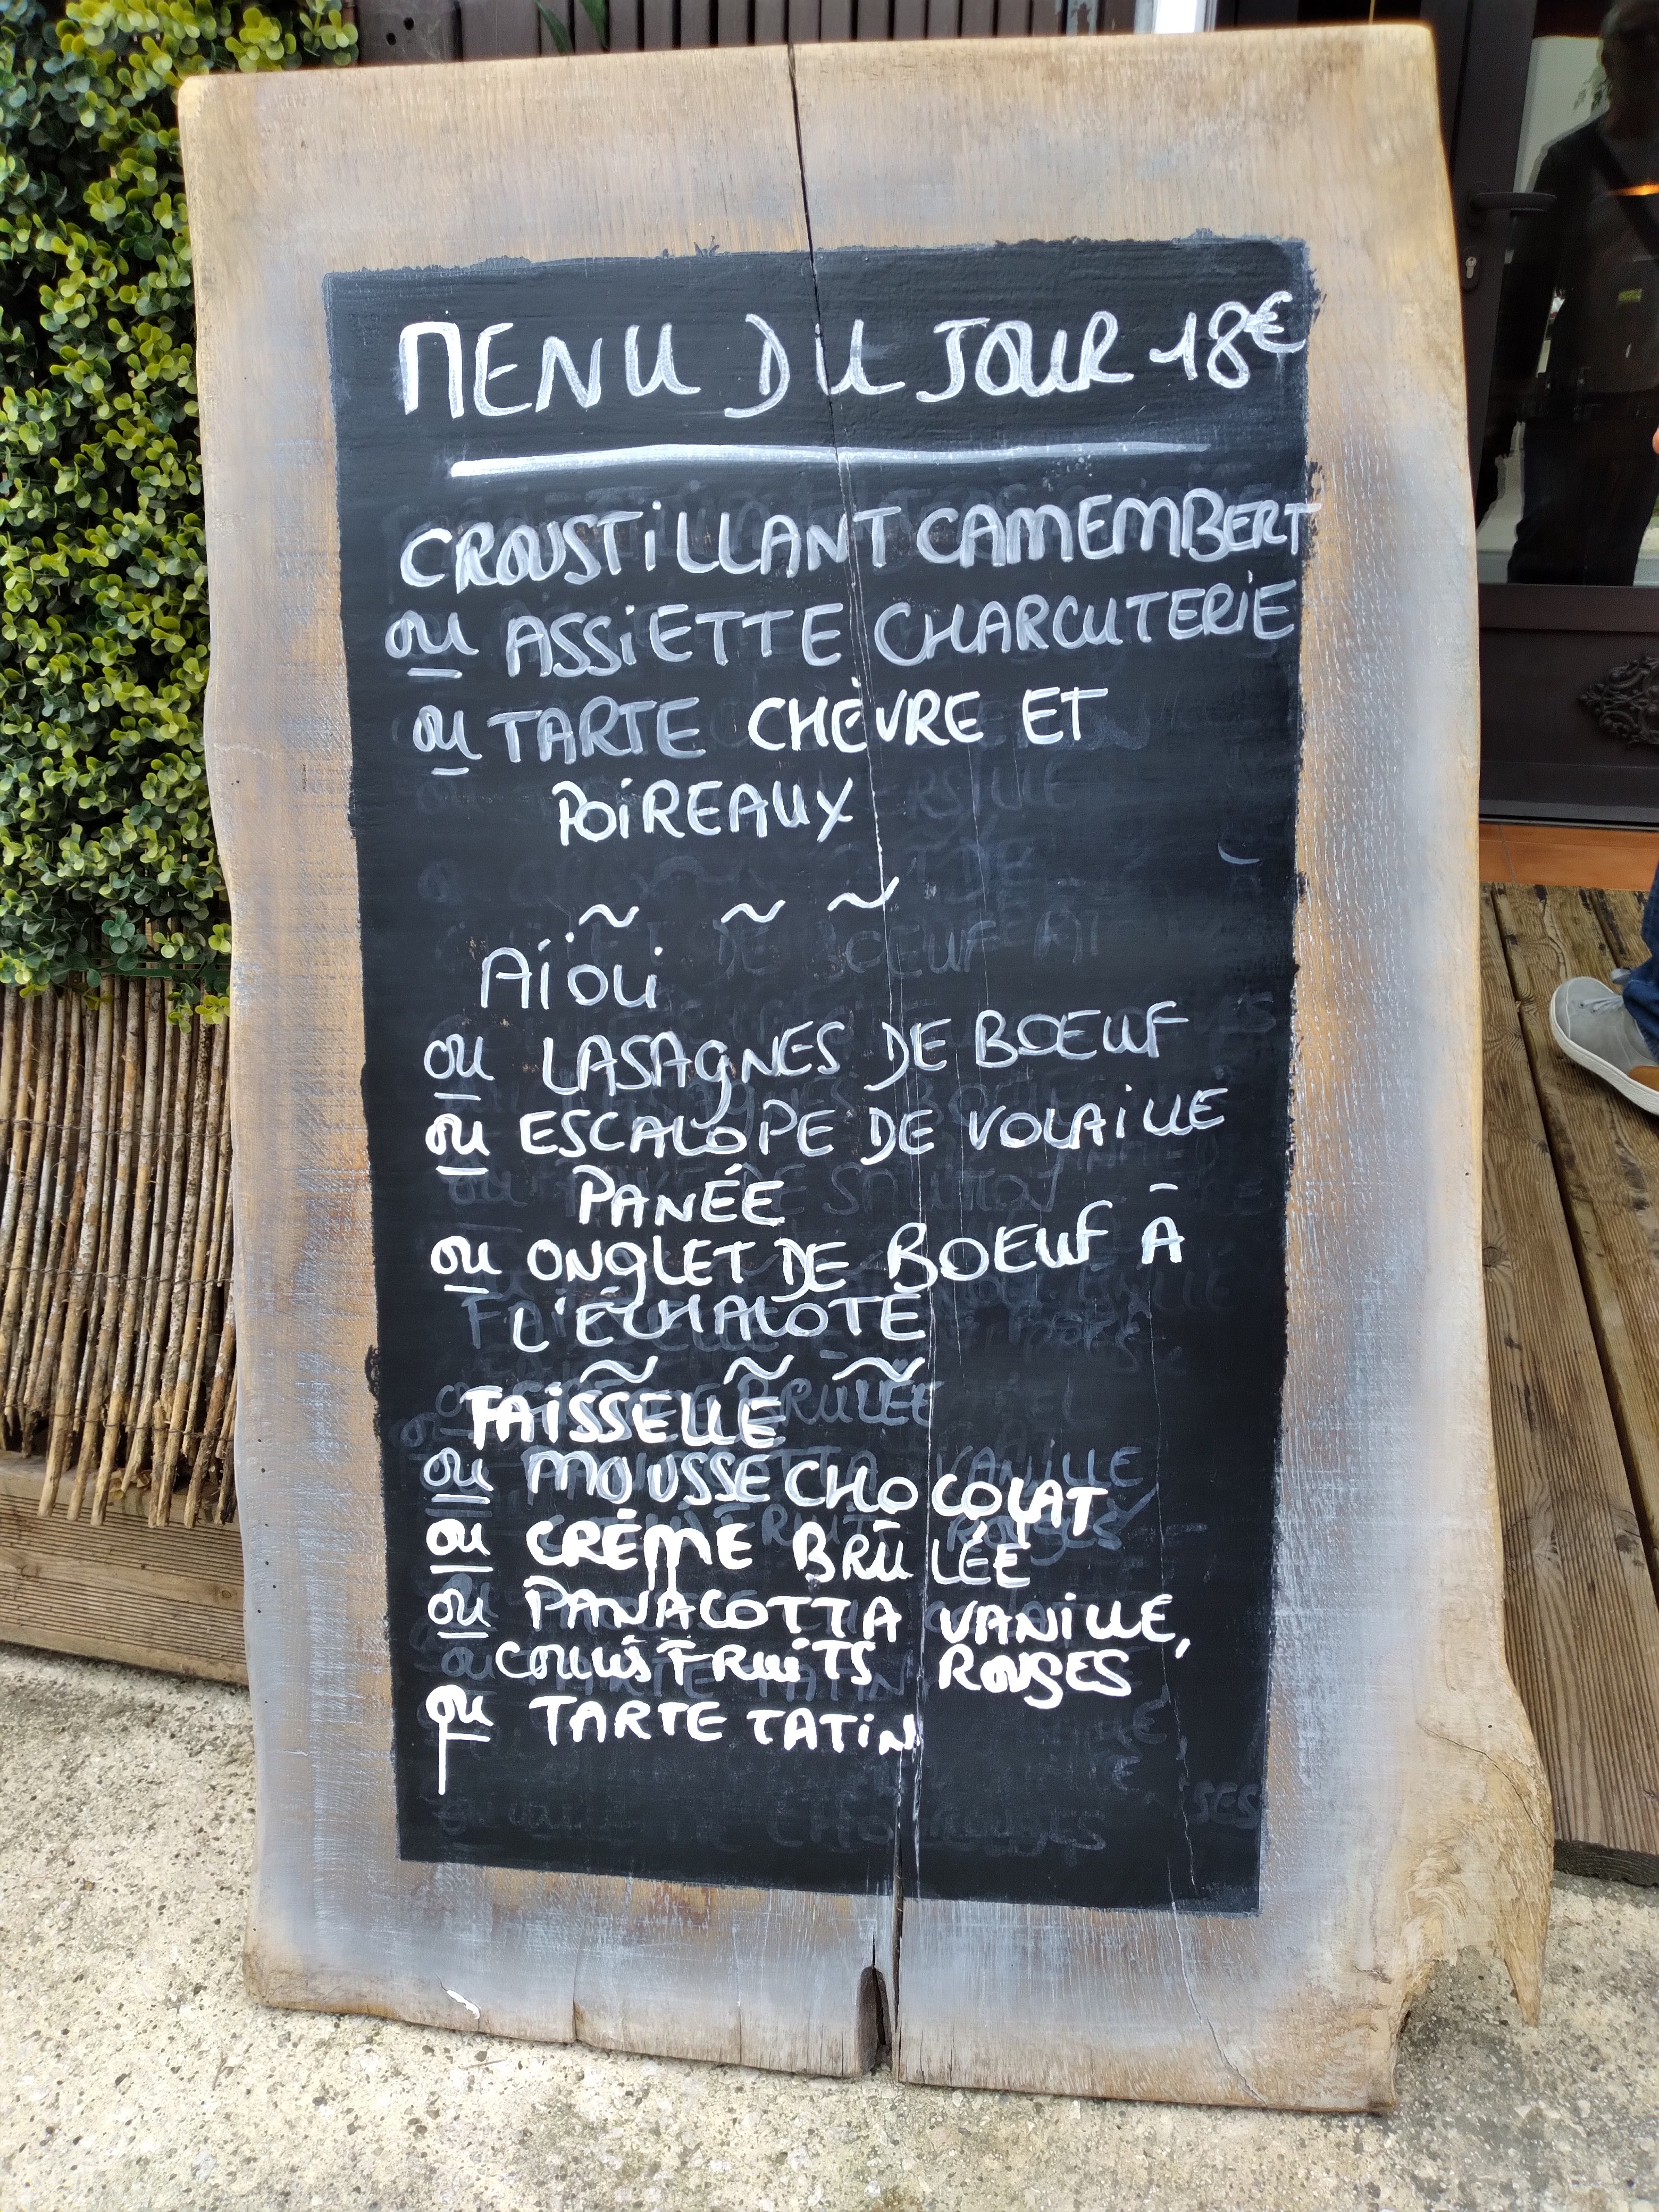 MENU DU JOUR 18€
CROUSTILLANT CAMEMBERT
ou ASSIETTE CHARCUTERIE
ou TARTE CHÈVRE ET
POIREAUX
~ ~ ~
AÏOLI
ou LASAGNES DE BOEUF
ou ESCALOPE DE VOLAILLE
PANÉE
ou ONGLET DE BOEUF À
L'ÉCHALOTE
~ ~ ~
FAISSELLE
ou MOUSSE CHOCOLAT
ou CRÈME BRÛLÉE
ou PANACOTTA VANILLE,
COULIS FRUITS ROUGES
ou TARTE TATIN